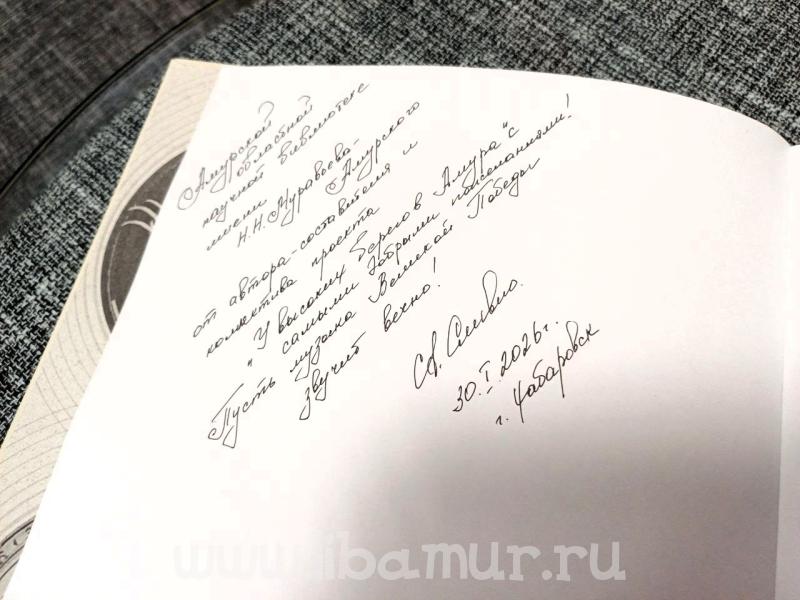 Амурской
областной
научной библиотеке
имени
Н.Н. Муравьева-
Амурского
от автора-составителя и
коллектива проекта
"У высоких берегов Амура" с
самыми добрыми пожеланиями!
Пусть музыка Великой Победы
звучит вечно!
Св.
30.I.2026г.
г. Хабаровск
www.libamur.ru